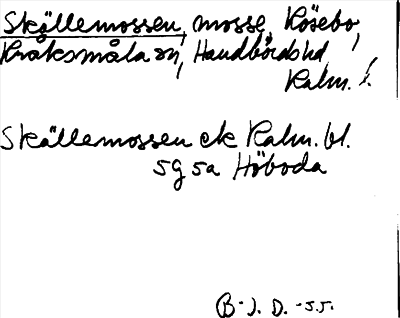 Skällemossen, mosse, Rösebo,
Kråksmåla sn, Handbörds hd,
Kalm. l.
Skällemossen ek Kalm. bl.
5g 5a Höboda
B. J. D. -55.